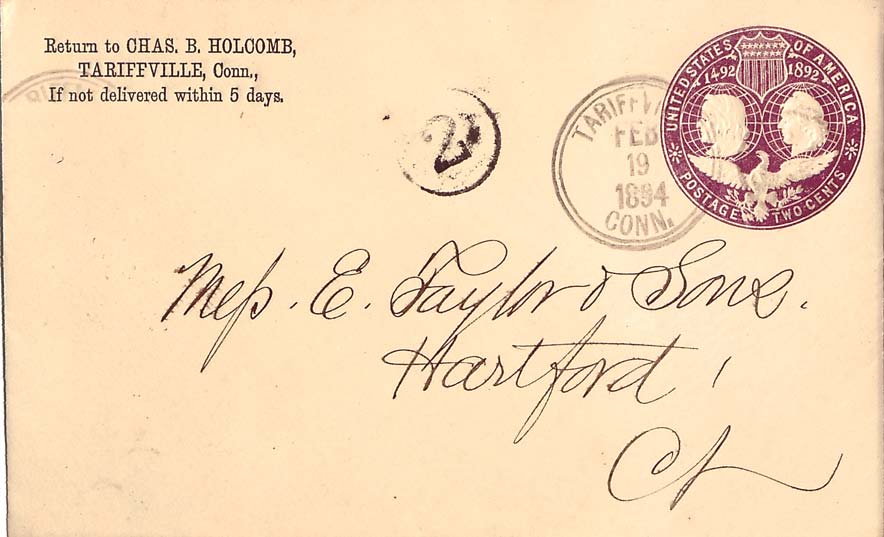 Return to CHAS. B. HOLCOMB,
TARIFFVILLE, Conn.,
If not delivered within 5 days.
2
TARIFFV
FEB
19
1894
CONN.
UNITED STATES OF AMERICA
1492 1892
POSTAGE TWO CENTS
Mess. E. Taylor & Sons.
Hartford,
Ct